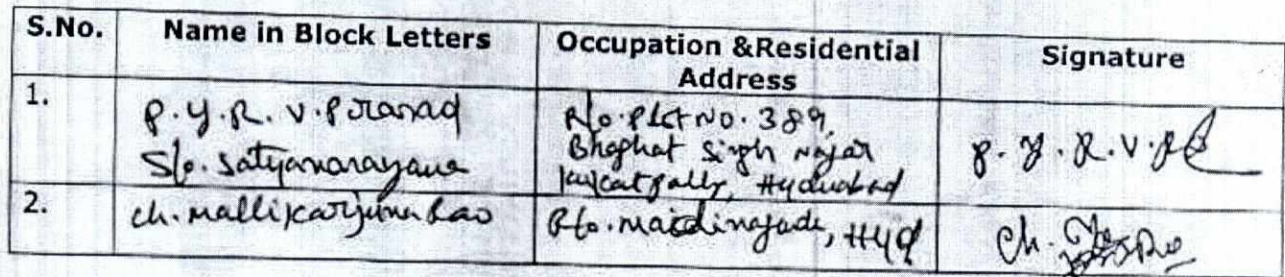 S.No. Name in Block Letters Occupation &Residential Address Signature
1. P.Y.R.V.Prasad
S/o. Satyanarayana
R/o. Plot No. 389,
Bhaghat Singh Nagar
Kukatpally, Hyderabad
P.Y.R.V.P
2. Ch. Mallikarjuna Rao
R/o. , Hyd
Ch.